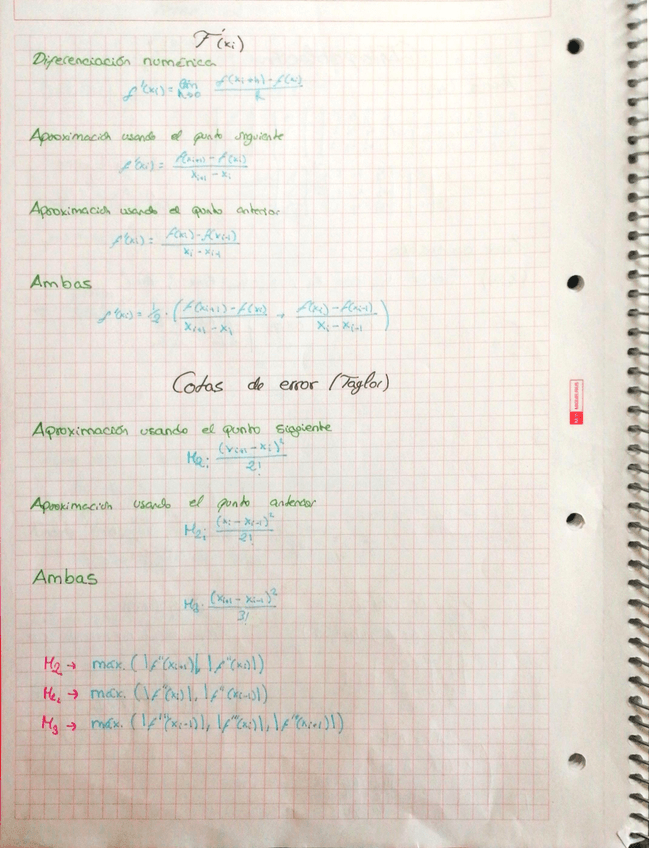 F'(xi)
Diferenciación numérica
f'(xi) = lím h→0 (f(xi+h) - f(xi)) / h
Aproximación usando el punto siguiente
f'(xi) = (f(xi+1) - f(xi)) / (xi+1 - xi)
Aproximación usando el punto anterior
f'(xi) = (f(xi) - f(xi-1)) / (xi - xi-1)
Ambas
f'(xi) = 1/2 · ( (f(xi+1) - f(xi)) / (xi+1 - xi) + (f(xi) - f(xi-1)) / (xi - xi-1) )
Cotas de error (Taylor)
Aproximación usando el punto siguiente
M2· (xi+1 - xi)² / 2!
Aproximación usando el punto anterior
M2i (xi - xi-1)² / 2!
Ambas
M3· (xi+1 - xi-1)² / 3!
M2 → máx. (|f''(xi+1)|, |f''(xi)|)
M2i → máx. (|f''(xi)|, |f''(xi-1)|)
M3 → máx. (|f'''(xi-1)|, |f'''(xi)|, |f'''(xi+1)|)